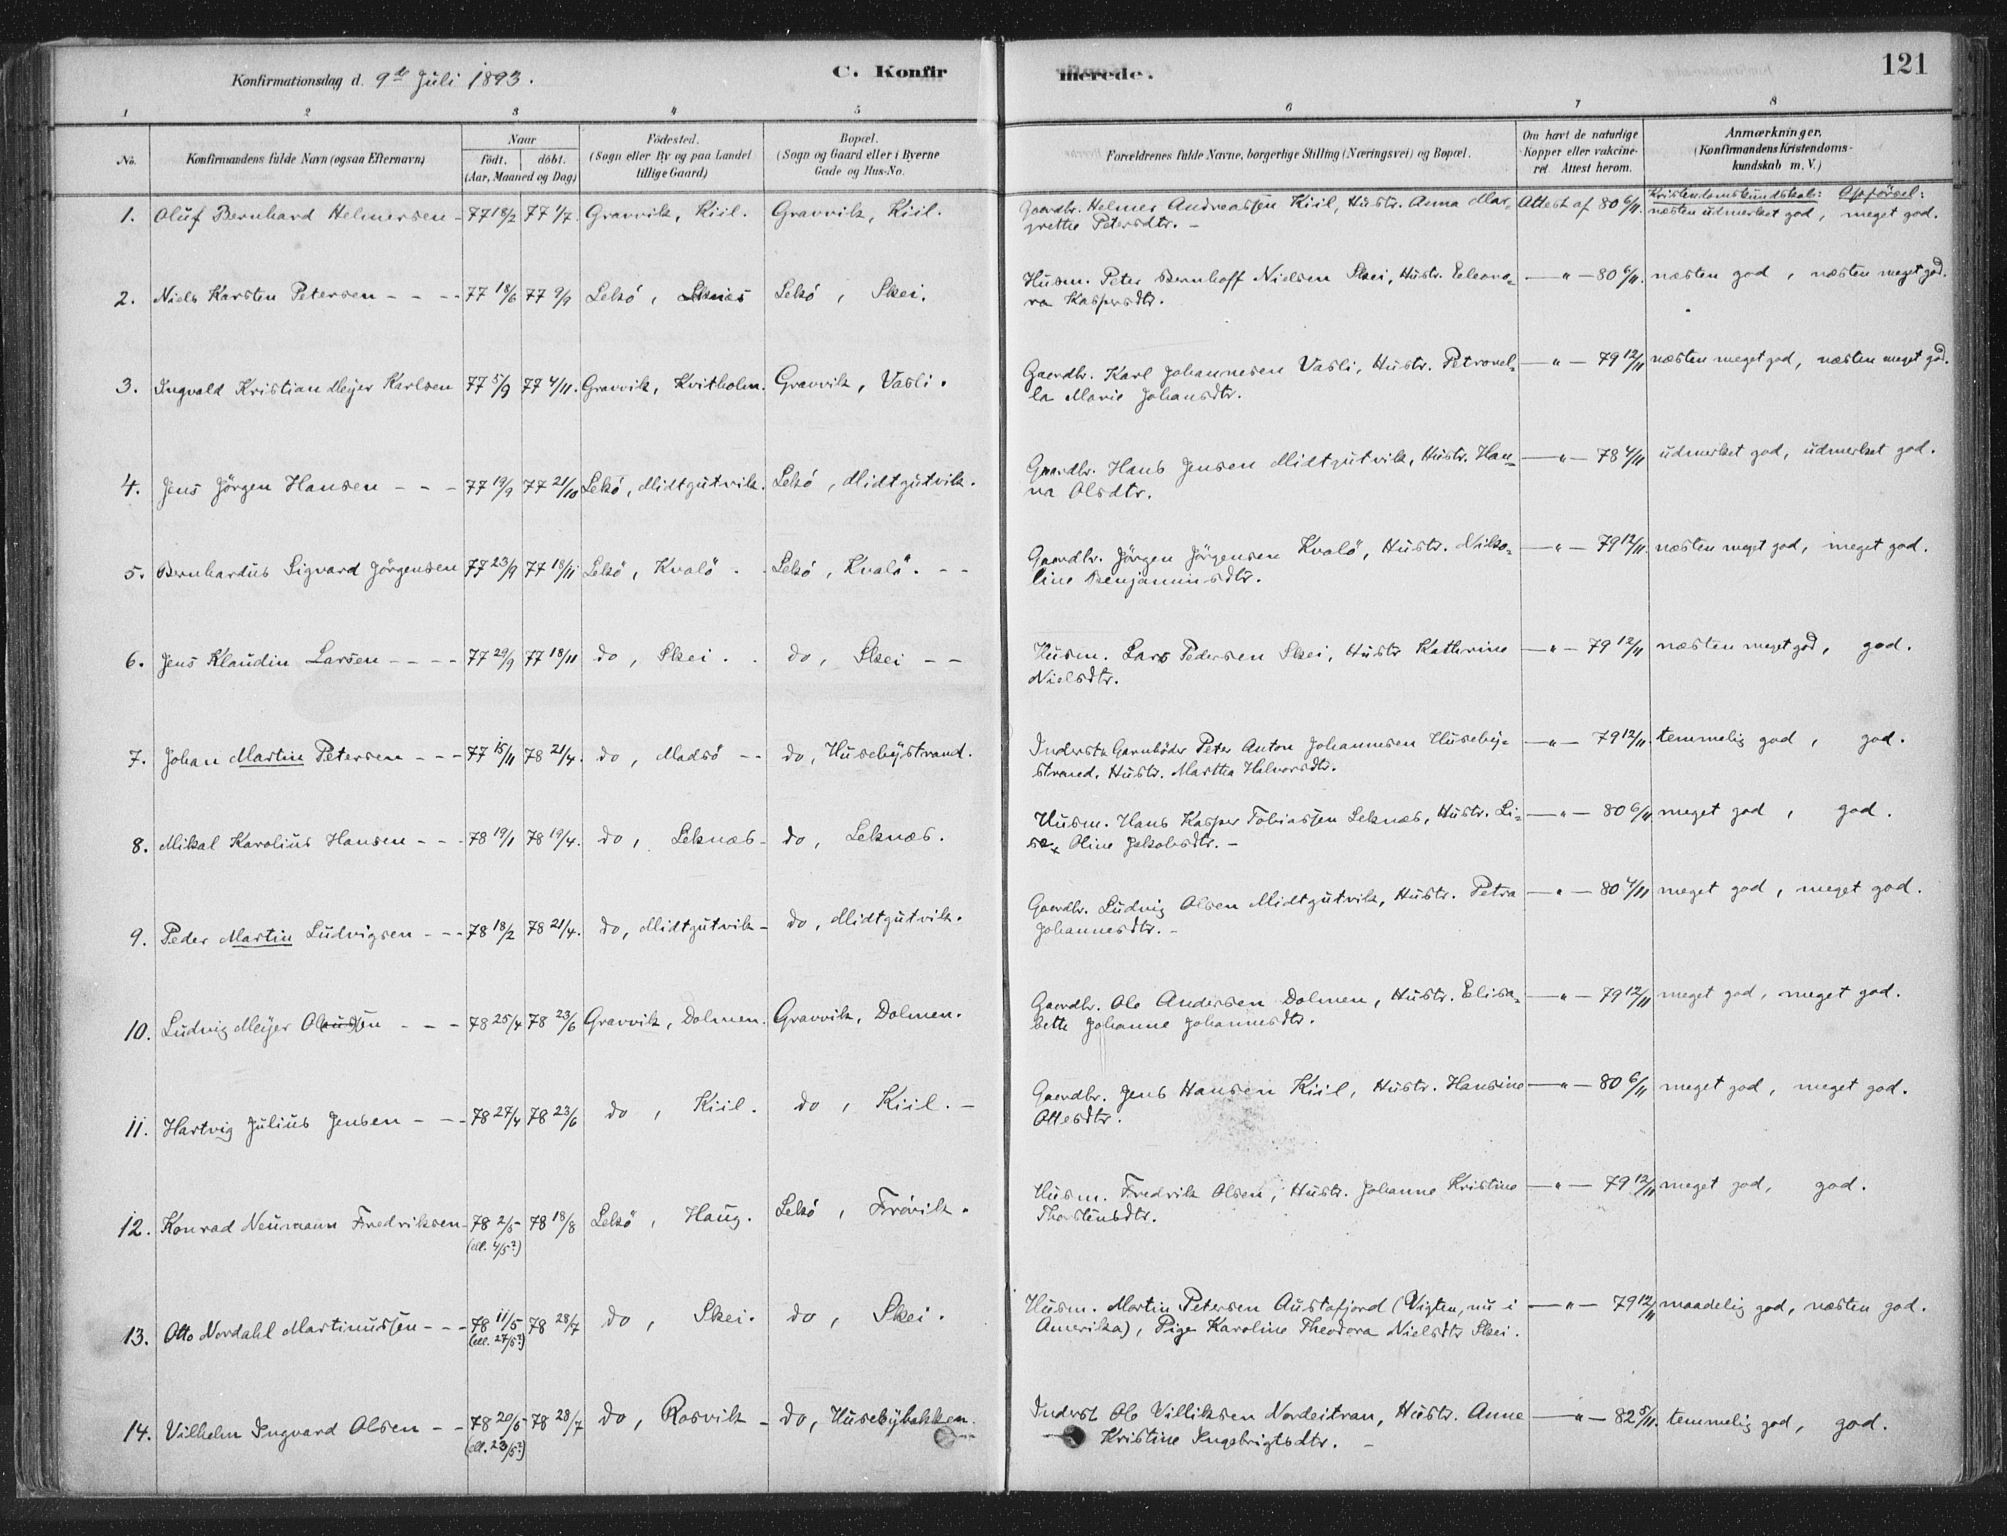 Konfirmationsdag d. 9de Juli 1893.
C. Konfirmerede.
121
1 2 3 4 5 6 7 8
No.
Konfirmandens fulde Navn (ogsaa Efternavn)
Naar
født. døbt.
(Aar, Maaned og Dag)
Fødested.
(Sogn eller By og paa Landet
tillige Gaard)
Bopæl.
(Sogn og Gaard eller i Byerne
Gade og Hus-No.
Forældrenes fulde Navne, borgerlige Stilling (Næringsvei) og Bopæl.
Om havt de naturlige
Kopper eller vakcine-
ret. Attest herom.
Anmærkninger.
(Konfirmandens Kristendoms-
kundskab m. V.)
Kristendomskundskab: Opførsel:
1. Oluf Bernhard Helmersen - 77 18/2 77 1/7 Gravvik, Kiil. Gravvik, Kiil. Gaardbr. Helmer Andreassen Kiil, Hustr. Anna Mar- Attest af 80 6/11. næsten udmerket god, meget god.
grethe Petersdtr. -
2. Niels Karsten Petersen - - - 77 18/6 77 9/9 Lekø, Leknæs Lekø, Skei. Husm. Peter Bernhoff Nielsen Skei, Hustr. Eleono- - " - 80 6/11. næsten god, næsten meget god.
ra Kaspersdtr.
3. Ingvald Kristian Meyer Karlsen 77 5/9 77 4/11. Gravvik, Kvitholm. Gravvik, Vasli. Gaardbr. Karl Johannesen Vasli, Hustr. Petronel- - " - 79 12/11 næsten meget god, næsten meget god.
la Marie Johansdtr.
4. Jens Jörgen Hansen - - - 77 19/9 77 21/10 Lekø, Midtgutvik. Lekø, Midtgutvik. Gaardbr. Hans Jensen Midtgutvik, Hustr. Han- - " - 78 4/11 udmerket god, udmerket god.
na Olsdtr.
5. Bernhardus Sigvard Jörgensen 77 23/9 77 18/11 Lekö, Kvalö - Lekö, Kvalö. - - Gaardbr. Jörgen Jörgensen Kvalö, Hustr. Niko- - " - 79 12/11. næsten meget god, meget god.
line Benjaminsdtr.
6. Jens Klaudin Larsen - - - - 77 29/9 77 18/11 do, Skei. . do, Skei - - Husm. Lars Pedersen Skei, Hustr Kathrine - " - 79 12/11 næsten meget god, god.
Nielsdtr.
7. Johan Martin Petersen - - - 77 15/11 78 21/4. do, Madsö - - do, Husebÿstrand. Inderst & Garnbøder Peter Anton Johannesen Husebÿ- - " - 79 12/11 temmelig god, god.
strand. Hustr. Martha Halvorsdtr.
8. Mikal Karolius Hansen - - - 78 19/1 78 19/4. do, Leknæs - do, Leknæs. Husm. Hans Kasper Tobiassen Leknæs, Hustr. Li- - " - 80 6/11 meget god, god.
sa Oline Jakobsdtr. -
9. Peder Martin Ludvigsen - - - 78 18/2 78 21/4. do, Midtgutvik - do, Midtgutvik. Gaardbr. Ludvig Olsen Midtgutvik, Hustr. Petra - " - 80 4/11 meget god, meget god.
Johannesdtr. -
10. Ludvig Meÿer Olsen - - - 78 25/4 78 23/6 Gravvik, Dolmen. Gravvik, Dolmen. Gaardbr. Ole Andersen Dolmen, Hustr. Elisa- - " - 79 12/11 meget god, meget god.
beth Johanne Johannesdtr.
11. Hartvig Julius Jensen - - - 78 27/4 78 23/6 do, Kiil. do, Kiil. - Gaardbr. Jens Hansen Kiil, Hustr. Hansine - " - 80 6/11 meget god, meget god.
Ottesdtr.
12. Konrad Neumann Fredriksen 78 2/5 78 18/8 Lekö, Haug. Lekö, Frövik. Husm. Fredrik Olsen, Hustr. Johanne Kristine - " - 79 12/11 meget god, god.
(ell. 4/5?) Thorstensdtr.
13. Otto Nordahl Martinussen - - - 78 11/5 78 28/7 do, Skei. do, Skei. Husm. Martin Petersen Austafjord (Vigten, nu i - " - 79 12/11 maadelig god, næsten god.
(ell. 27/5?) Amerika), Pige Karoline Theodora Nielsdtr Skei.
14. Vilhelm Ingvard Olsen - - 78 20/5 78 28/7 do, Rosvik - do, Husebÿbakken. Inderst Ole Villiksen Nordeitran, Hustr. Anne - " - 82 5/11. temmelig god, god.
(ell. 23/5?) Kristine Ingebrigtsdtr. -